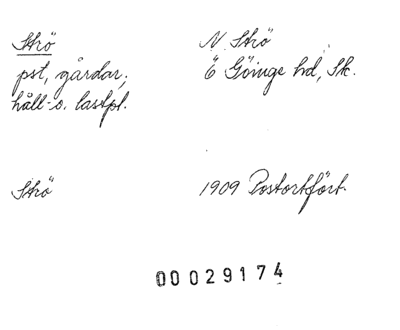 Strö
N. Strö
pst, gårdar;
Ö Göinge hd, Sk.
håll- o. lastpl.
Strö
1909 Postortfört.
00029174